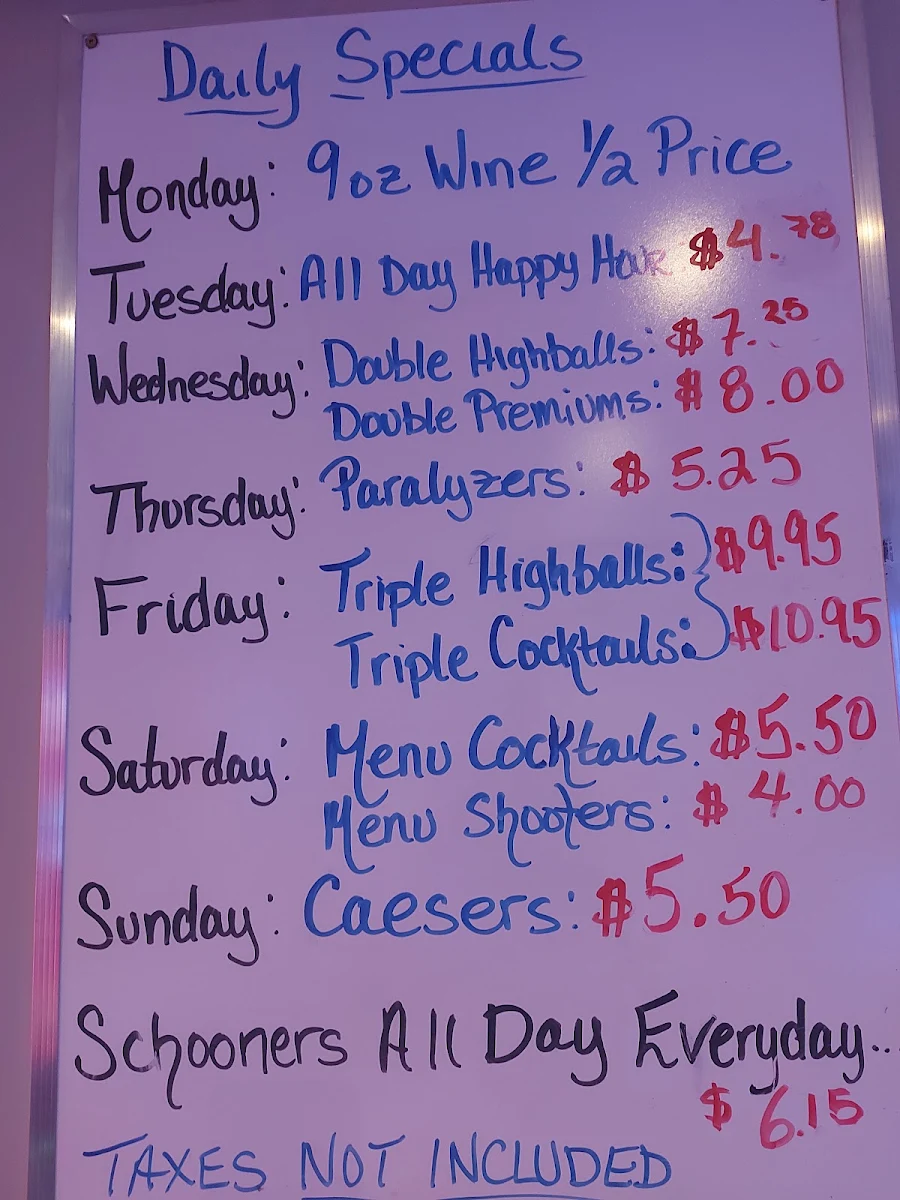 Daily Specials
Monday: 9oz Wine 1/2 Price
Tuesday: All Day Happy Hour $4.78
Wednesday: Double Highballs: $7.25
Double Premiums: $8.00
Thursday: Paralyzers: $5.25
Friday: Triple Highballs: $9.95
Triple Cocktails: $10.95
Saturday: Menu Cocktails: $5.50
Menu Shooters: $4.00
Sunday: Caesers: $5.50
Schooners All Day Everyday...
$6.15
TAXES NOT INCLUDED